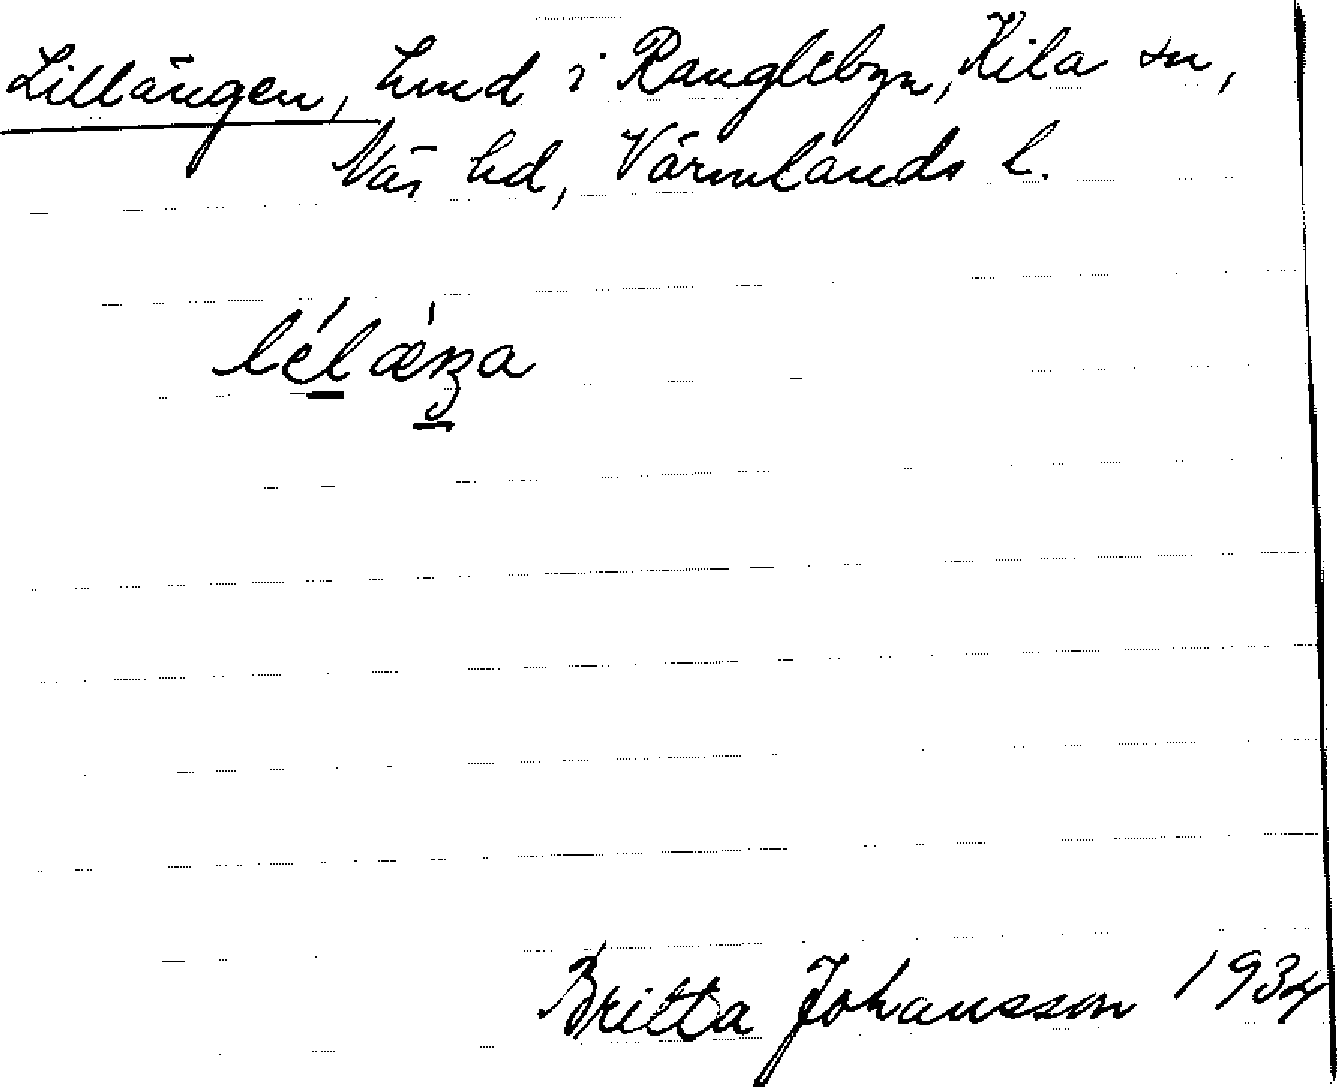 Lillängen, lund i Ranglebyn, Kila sn,
Näs hd, Värmlands l.
Britta Johansson 1934